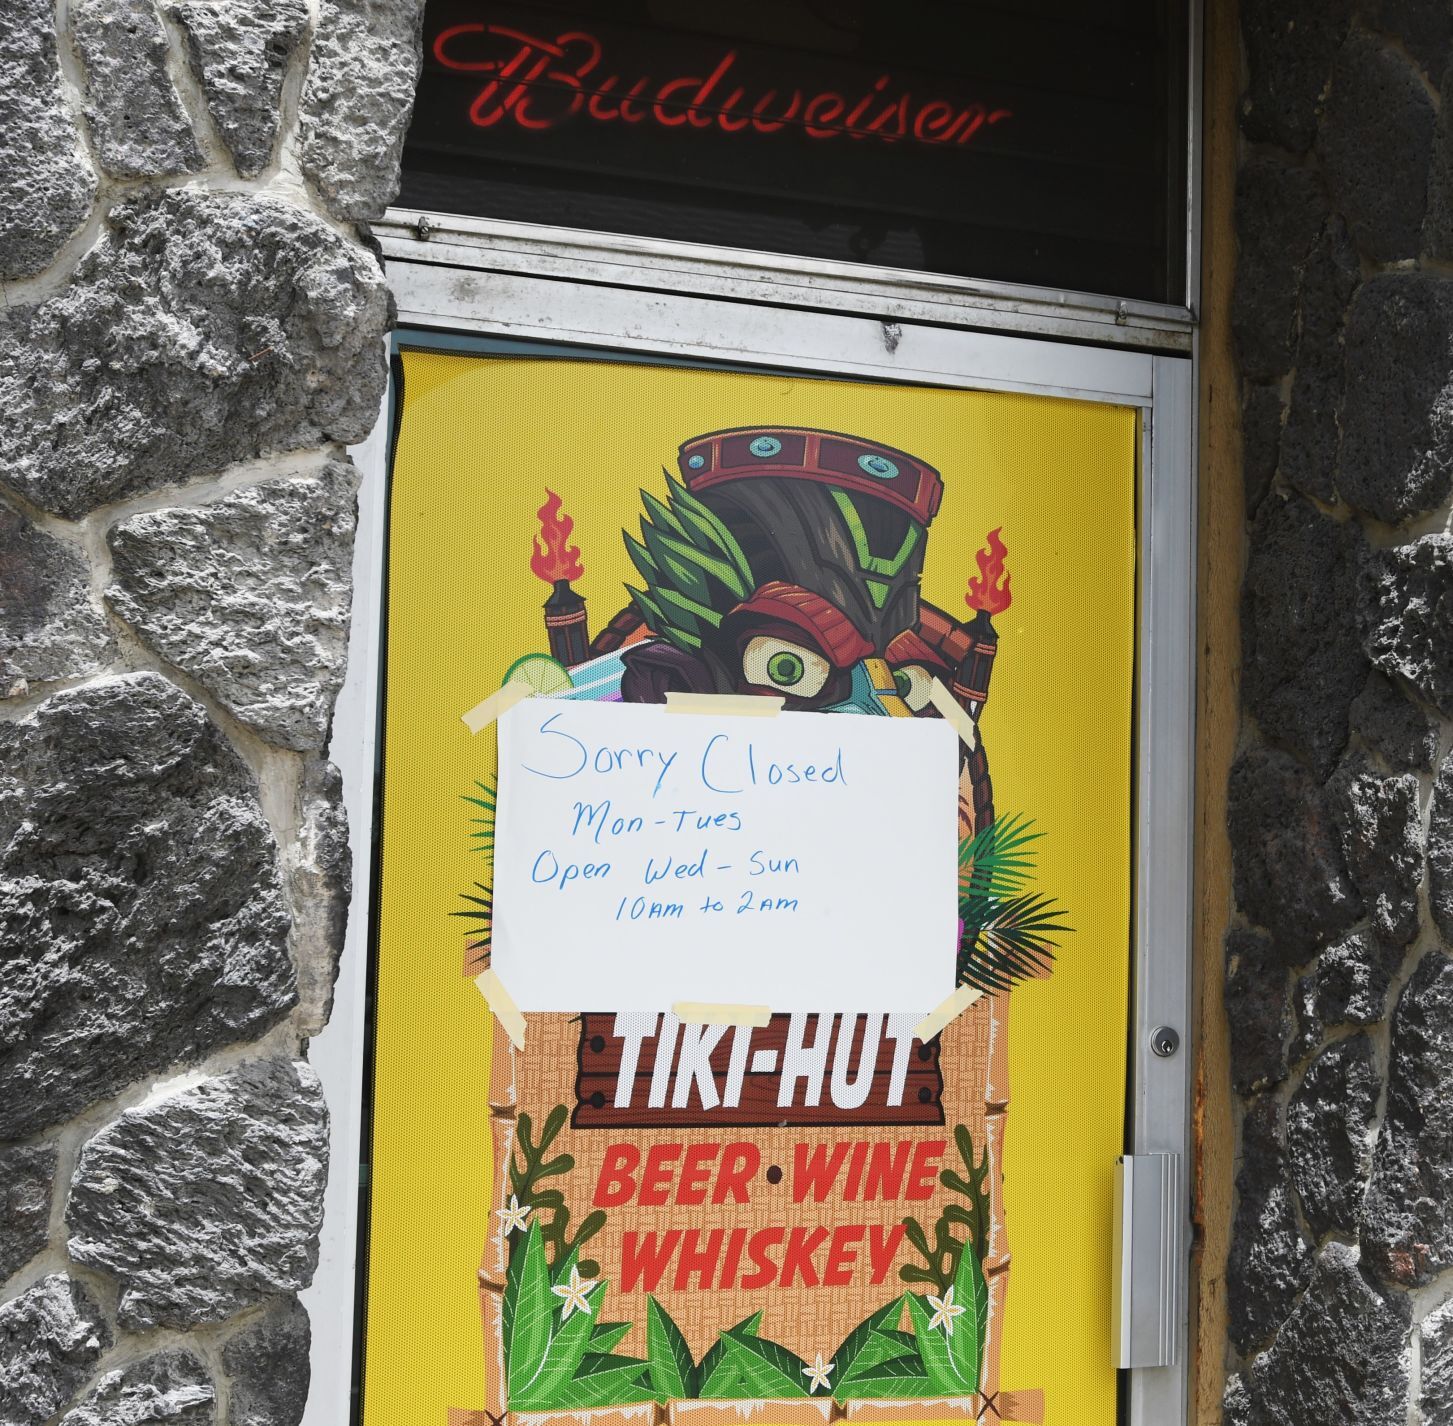 Budweiser
Sorry Closed
Mon-Tues
Open Wed - Sun
10AM to 2AM
TIKI-HUT
BEER • WINE
WHISKEY